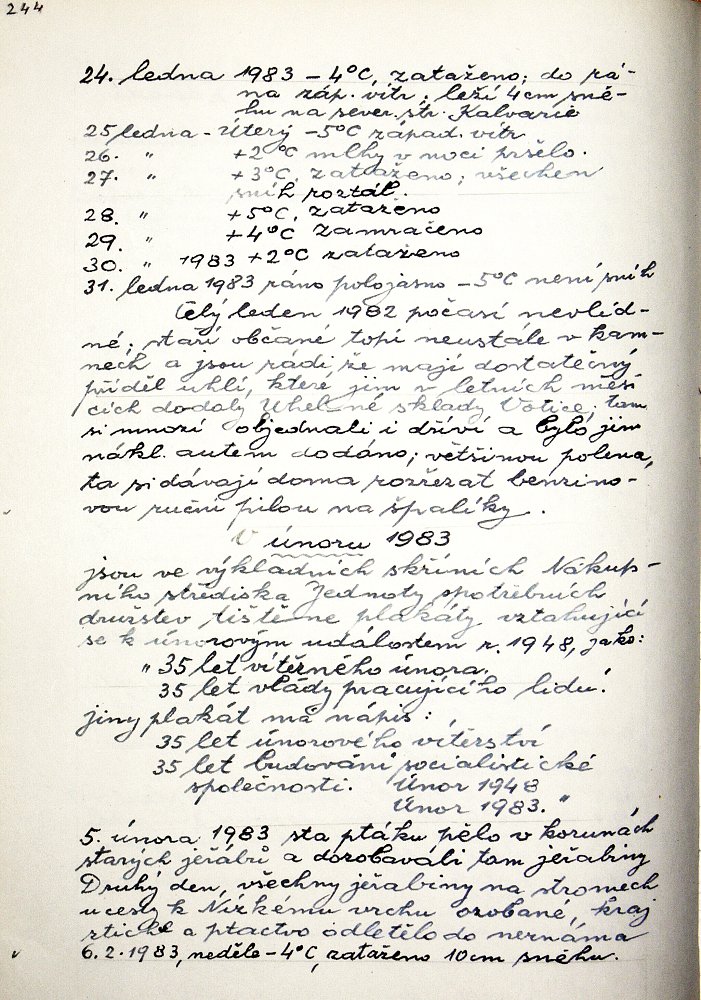 244
24. ledna 1983 – 4°C, zataženo; do rá-
na záp. vítr; leží 4cm sně-
hu na sever. str. Kalvarie
25 ledna - Úterý –5°C západ. vítr
26. " +2°C mlhy v noci pršelo.
27. " +3°C, zataženo; všechen
sníh roztál.
28. " +5°C, zataženo
29. " +4°C zamračeno
30. " 1983 +2°C zataženo
31. ledna 1983 ráno polojasno –5°C není sníh
Celý leden 1982 počasí nevlíd-
né; staří občané topí neustále v kam-
nech a jsou rádi, že mají dostatečný
příděl uhlí, které jim v letních měsí
cích dodaly Uhelné sklady Votice; tam
si mnozí objednali i dříví a bylo jim
nákl. autem dodáno; většinou polena,
ta si dávají doma rozřezat benzino-
vou ruční pilou na špalíky.
V únoru 1983
jsou ve výkladních skříních Nákup-
ního střediska Jednoty spotřebních
družstev tištěné plakáty vztahující
se k únorovým událostem r. 1948, jako:
" 35 let vítězného února.
35 let vlády pracujícího lidu!
jiny plakát má nápis:
35 let únorového vítězství
35 let budování socialistické
společnosti. Únor 1948
Únor 1983. "
5. února 1983 sta ptáků pělo v korunách
starých jeřábů a dozobávali tam jeřabiny
Druhý den, všechny jeřabiny na stromech
u cesty k Nízkému vrchu ozobané, kraj
ztichl a ptactvo odletělo do neznáma
6.2.1983, neděle –4°C, zataženo 10cm sněhu.